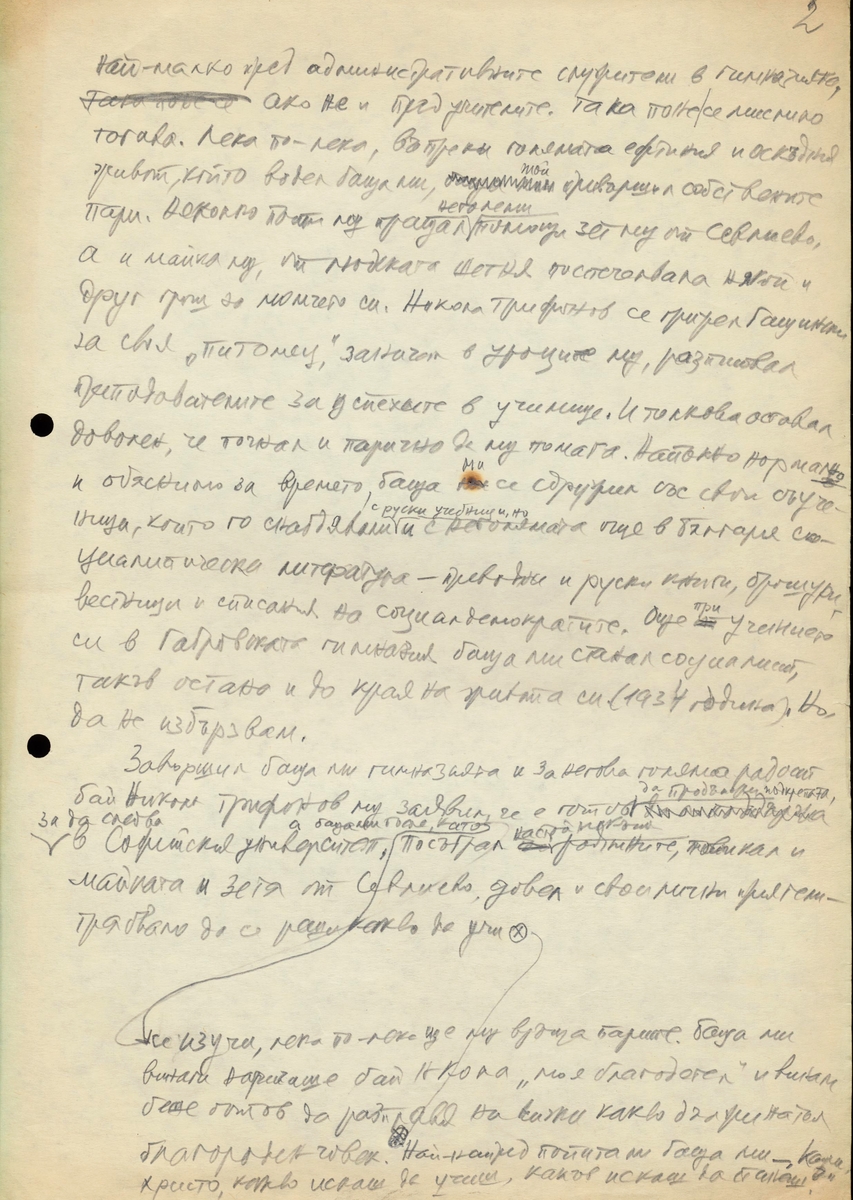 2
най-малко пред административните служители в гимназията,
ако не и пред учителите. Така поне се мислило
тогава. Лека по-лека, въпреки голямата евтиния и оскъдния
живот, който водел баща ми, той привършил собствените
пари. Неколко пъти му пращал неголеми помощи зет му от Севлиево,
а и майка му, от людската къщня поспечелвала някой и
друг грош за момчето си. Никола Трифонов се грижел бащински
за своя „питомец", занича в уроците му, разпитвал
преподавателите за успехите в училище. И толкова оставал
доволен, че почнал и парично да му помага. Напълно нормално
и обяснимо за времето, баща ми се сдружил със свои съуче-
ници, които го снабдявали с руски учебници, но и с неголямата още в България со-
циалистическа литература – преводни и руски книги, брошури,
вестници и списания на социалдемократите. Още при учението
си в Габровската гимназия баща ми станал социалист,
такъв остана и до края на живота си (1934 година). Но,
да не избързвам.
Завършил баща ми гимназията и за негова голяма радост
бай Никола Трифонов му заявил, че е готов да продължи подкрепата,
за да следва
в Софийския университет, а баща ми да се, като
Посъбрал роднините, повикал и
майката и зетя от Севлиево, довел и свои лични приятели –
трябвало да се реши какво да учи ⊗
се изучи, лека по-лека ще му връща парите. Баща ми
винаги наричаше бай Никола „моя благодетел" и винаги
беше готов да разправя на всички какво дължи на този
благороден човек. Най-напред попитали баща ми –, Кажи,
Христо, какво искаш да учиш, какъв искаш да станеш?"